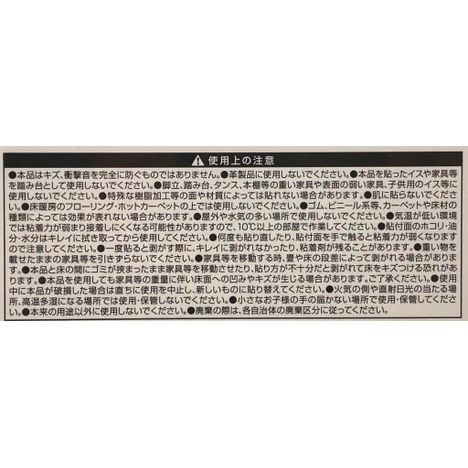 ⚠ 使用上の注意
●本品はキズ、衝撃音を完全に防ぐものではありません。●革製品に使用しないでください。●本品を貼ったイスや家具等
を踏み台として使用しないでください。●脚立、踏み台、タンス、本棚等の重い家具や表面の弱い家具、子供用のイス等に
使用しないでください。●特殊な樹脂加工等の面や材質によっては貼れない場合があります。●肌に貼らないでくださ
い。●床暖房のフローリング・ホットカーペットの上では使用しないでください。●ゴム、ビニール系等、カーペットや床材の
種類によっては効果が表れない場合があります。●屋外や水気の多い場所で使用しないでください。●気温が低い環境
では粘着力が弱まり接着しにくくなる可能性がありますので、10℃以上の部屋で作業してください。●貼付面のホコリ・油
分・水分はキレイに拭き取ってから使用してください。●何度も貼り直したり、貼付面を手で触ると粘着力が弱くなります
ので注意してください。●一度貼ると剥がす際に、キレイに剥がれなかったり、粘着剤が残ることがあります。●重い物を
載せたままの家具等を引きずらないでください。●家具等を移動する時、畳や床の段差によって剥がれる場合がありま
す。●本品と床の間にゴミが挟まったまま家具等を移動させたり、貼り方が不十分だと剥がれて床をキズつける恐れがあ
ります。●本品を使用しても家具等の重量に伴い床面への凹みやキズが生じる場合があります。ご了承ください。●使用
中に本品が破損した場合は直ちに使用を中止し、新しいものに貼り替えてください。●火気の側や直射日光の当たる場
所、高温多湿になる場所では使用・保管しないでください。●小さなお子様の手の届かない場所で使用・保管してくださ
い。●本来の用途以外に使用しないでください。●廃棄の際は、各自治体の廃棄区分に従ってください。